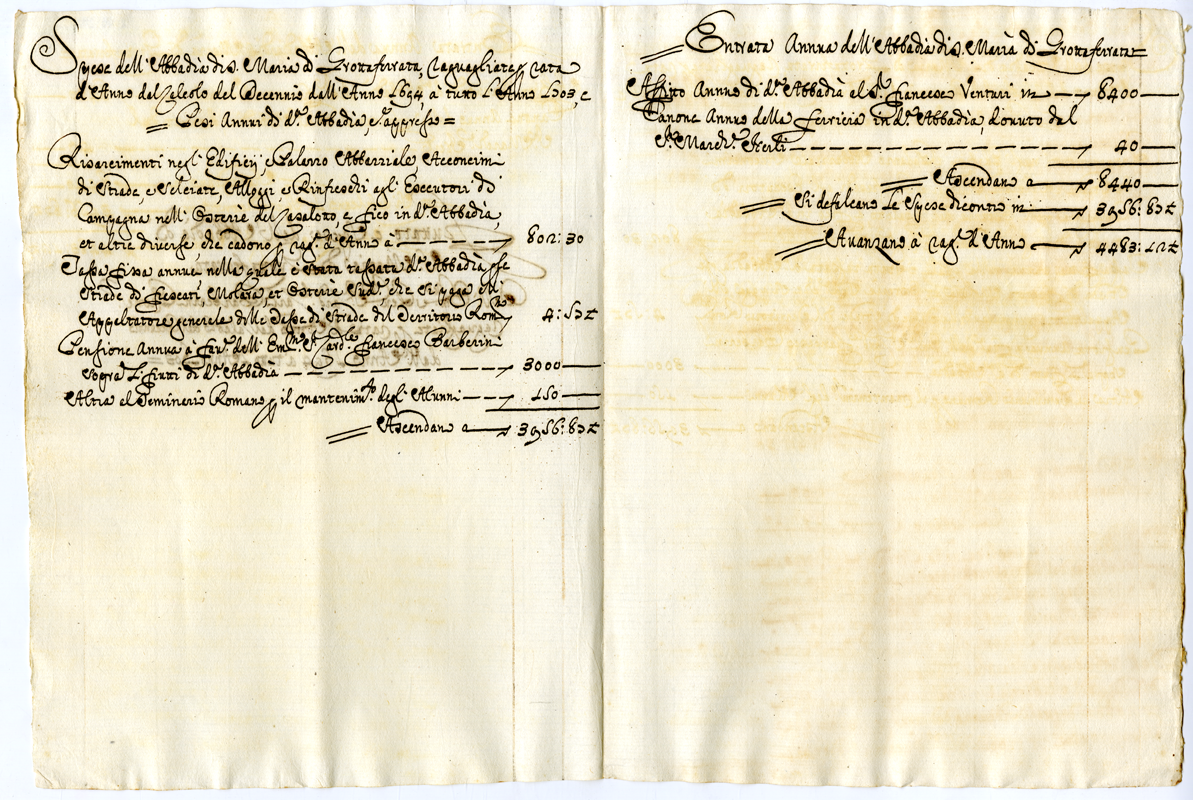 Spese dell'Abbadia di S. Maria di Grottaferrata, raguagliate p rata
d'Anno dal Calcolo del Decennio dall'Anno 1694, à tutto l'Anno 1703, e
Pesi Annui di d.ª Abbadia, e.ª appresso =
Risarcimenti negl'Edifizij, e Palazzo Abbaziale, Acconcimi
di Strade, e Selciate, Alloggi, e Rinfreschi agl'Esecutori di
Campagna nell'Osterie del, e fico in d.ª Abbadia,
et altre diverse, che cadono p rag.e d'Anno à 802:30
Tassa fissa annua, nella quale è stata tassata d.ª Abbadia p le
Strade di frascati, Molara, et Osterie Sud.e, che si paga all'
Appaltatore generale delle Tasse di Strade del Territorio Rom.o 4:53½
Pensione Annua à fav.e dell'Em.mo S.r Card.le francesco Barberini
sopra l. frutti di d.ª Abbadia 3000
Altra al Seminario Romano p il mantenim.to degl'Alunni 150
Ascendano a 3956:83½
Entrata Annua dell'Abbadia di S. Maria di Grottaferrata =
Affitto Annuo di d.ª Abbadia al S.r francesco Venturi in 8400
Canone Annuo della ferriera in d.ª Abbadia, dovuto dal
S.r March.e 40
Ascendano a 8440
Si defalcano le Spese di contro in 3956:83½
Avanzano à rag.e d'Anno 4483:12½